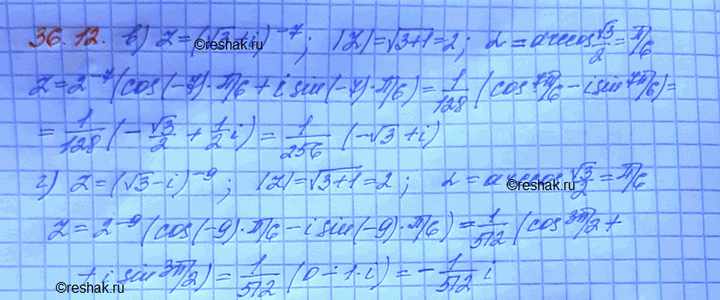 36.12. в) z = (√3+i)⁻⁷; |z| = √3+1 = 2; α = arccos √3/2 = π/6
z = 2⁻⁷ (cos(-7)·π/6 + i sin(-7)·π/6) = 1/128 (cos 7π/6 - i sin 7π/6) =
= 1/128 (-√3/2 + 1/2 i) = 1/256 (-√3 + i)
г) z = (√3-i)⁻⁹; |z| = √3+1 = 2; α = arccos √3/2 = π/6
z = 2⁻⁹ (cos(-9)·π/6 - i sin(-9)·π/6) = 1/512 (cos 3π/2 +
+ i sin 3π/2) = 1/512 (0 - 1·i) = - 1/512 i
©reshak.ru